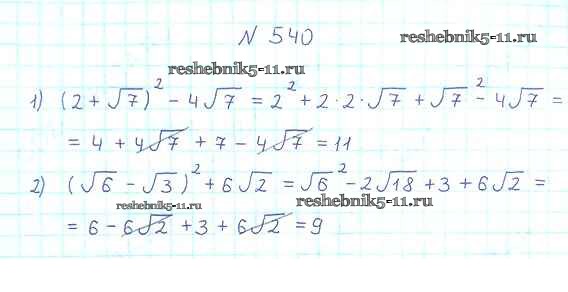 N 540
reshebnik5-11.ru
reshebnik5-11.ru
1) (2 + √7)² - 4√7 = 2² + 2·2·√7 + √7² - 4√7 =
= 4 + 4√7 + 7 - 4√7 = 11
2) (√6 - √3)² + 6√2 = √6² - 2√18 + 3 + 6√2 =
reshebnik5-11.ru
reshebnik5-11.ru
= 6 - 6√2 + 3 + 6√2 = 9